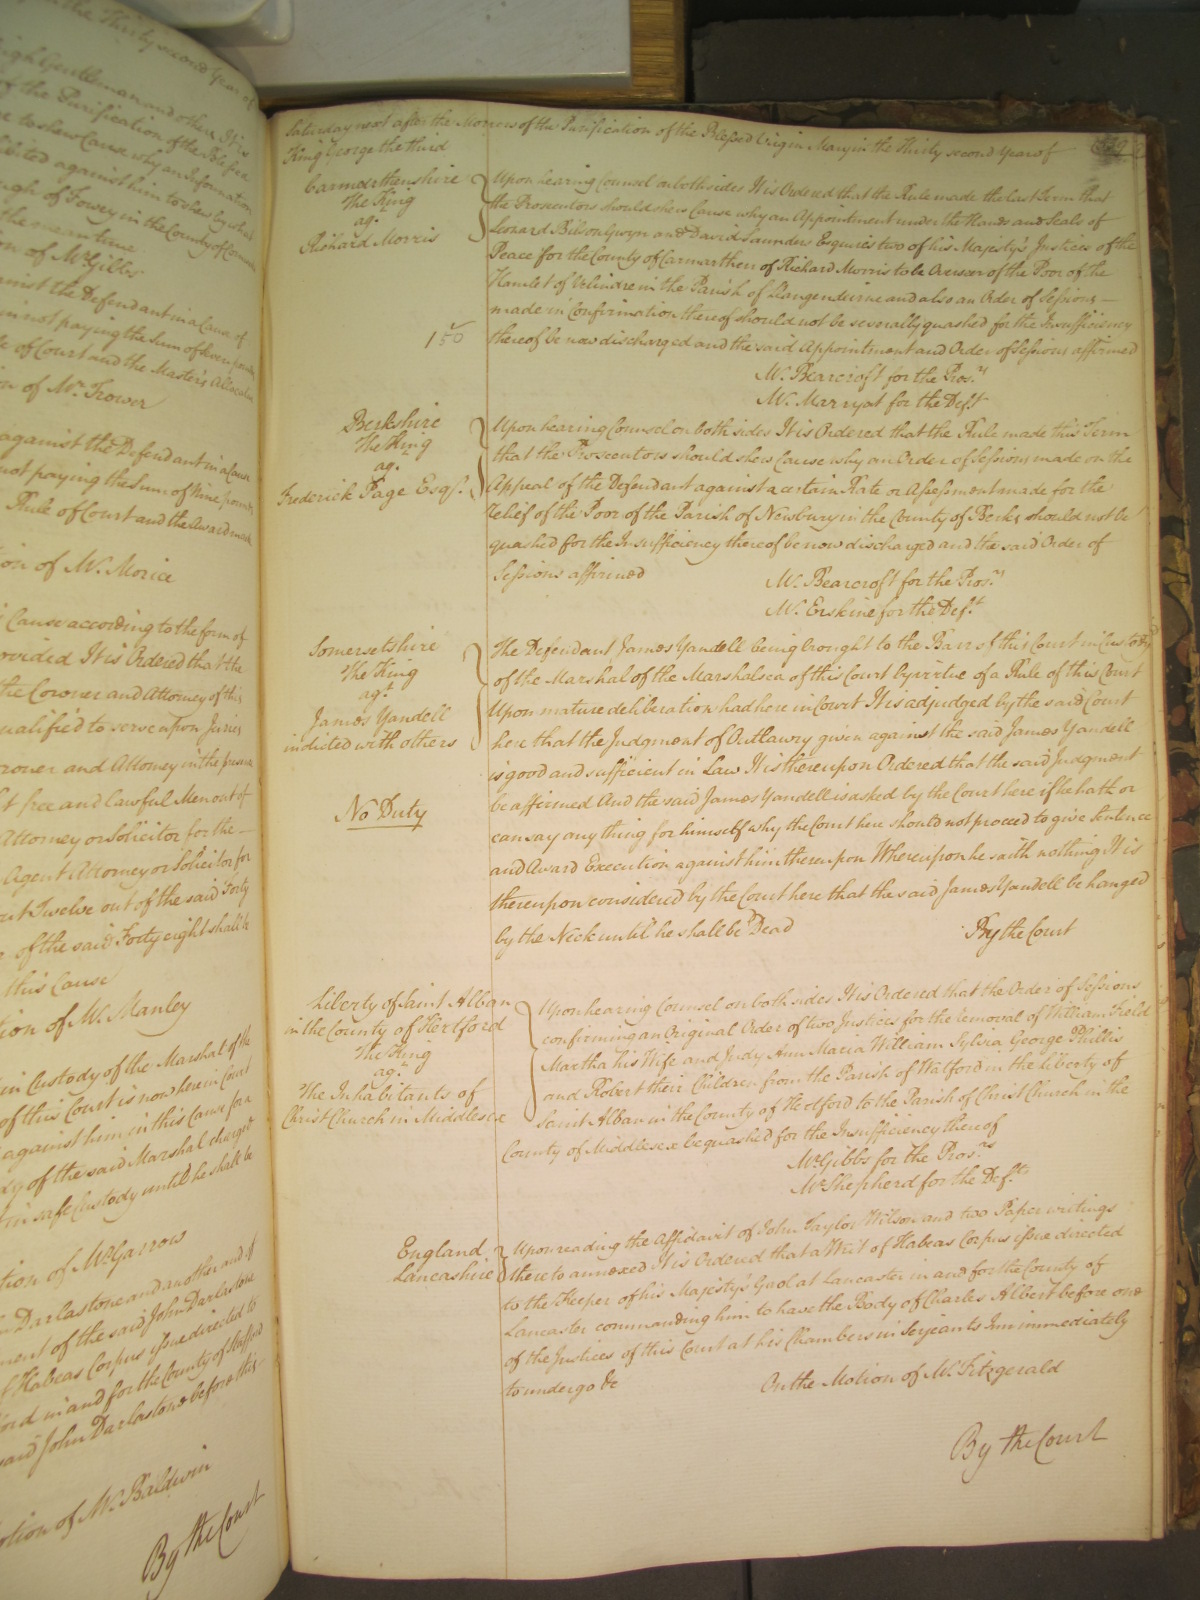 the Thirty second Year of
Gentleman and others It is
of the Purification of the Blessed
to shew Cause why an Information
exhibited against him to shew by what
of Fowey in the County of Cornwall
the mean time
on of Mr. Gibbs
against the Defendant in a Cause of
in not paying the Sum of seven pounds
of Court and the Master's Allocatur
on of Mr. Trower
against the Defendant in a Cause
not paying the Sum of Nine pounds
Rule of Court and the Award made
ion of Mr. Morice
Cause according to the form of
provided It is Ordered that the
the Coroner and Attorney of this
qualified to serve upon Juries
Coroner and Attorney in the presence
free and lawful Men out of
Attorney or Solicitor for the
Agent Attorney or Solicitor for
Twelve out of the said Forty
of the said Forty eight shall be
this Cause
tion of Mr. Manley
in Custody of the Marshal of the
of this Court is now here in Court
against him in this Cause for a
of the said Marshal charged
in safe Custody until he shall be
tion of Mr. Garrow
Darlastone and another and of
of the said John Darlastone
Habeas Corpus issue directed to
in and for the County of Stafford
said John Darlastone before this
otion of Mr. Baldwin
By the Court
Saturday next after the Morrow of the Purification of the Blessed Virgin Mary in the Thirty second Year of
King George the third
Carmarthenshire
The King
ag.
Richard Morris
150
Upon hearing Counsel on both sides It is Ordered that the Rule made the last Term that
the Prosecutors should shew Cause why an Appointment under the Hands and Seals of
Leonard Bilson Gwyn and David Saunders Esquires two of his Majesty's Justices of the
Peace for the County of Carmarthen of Richard Morris to be Overseer of the Poor of the
Hamlet of Velindre in the Parish of Llangendeirne and also an Order of Sessions
made in Confirmation thereof should not be severally quashed for the Insufficiency
thereof be now discharged and the said Appointment and Order of Sessions affirmed
Mr. Bearcroft for the Pros.rs
Mr. Marryat for the Def.t
Berkshire
The King
ag.
Frederick Page Esqr.
Upon hearing Counsel on both sides It is Ordered that the Rule made this Term
that the Prosecutors should shew Cause why an Order of Sessions made on the
Appeal of the Defendant against a certain Rate or Assessment made for the
relief of the Poor of the Parish of Newbury in the County of Berks should not be
quashed for the Insufficiency thereof be now discharged and the said Order of
Sessions affirmed
Mr. Bearcroft for the Pros.rs
Mr. Erskine for the Def.t
Somersetshire
The King
ag.t
James Yandell
indicted with others
No Duty
The Defendant James Yandell being brought to the Barr of this Court in Custody
of the Marshal of the Marshalsea of this Court by virtue of a Rule of this Court
Upon mature deliberation had here in Court It is adjudged by the said Court
here that the Judgment of Outlawry given against the said James Yandell
is good and sufficient in Law It is thereupon Ordered that the said Judgment
be affirmed And the said James Yandell is asked by the Court here if he hath or
can say any thing for himself why the Court here should not proceed to give Sentence
and Award Execution against him thereupon Whereupon he saith nothing It is
thereupon considered by the Court here that the said James Yandell be hanged
by the Neck until he shall be Dead
By the Court
Liberty of Saint Alban
in the County of Hertford
The King
ag.t
The Inhabitants of
Christ Church in Middlesex
Upon hearing Counsel on both sides It is Ordered that the Order of Sessions
confirming an Original Order of two Justices for the removal of William Field
Martha his Wife and Judy Ann Maria William Sylvia George Phillis
and Robert their Children from the Parish of Watford in the liberty of
Saint Alban in the County of Hertford to the Parish of Christ Church in the
County of Middlesex be quashed for the Insufficiency thereof
Mr. Gibbs for the Pros.rs
Mr. Shepherd for the Def.ts
England
Lancashire
Upon reading the Affidavit of John Taylor Wilson and two Paper writings
thereto annexed It is Ordered that a Writ of Habeas Corpus issue directed
to the Keeper of his Majesty's Gaol at Lancaster in and for the County of
Lancaster commanding him to have the Body of Charles Albert before one
of the Justices of this Court at his Chambers in Serjeants Inn immediately
to undergo &c
On the Motion of Mr. Fitzgerald
By the Court